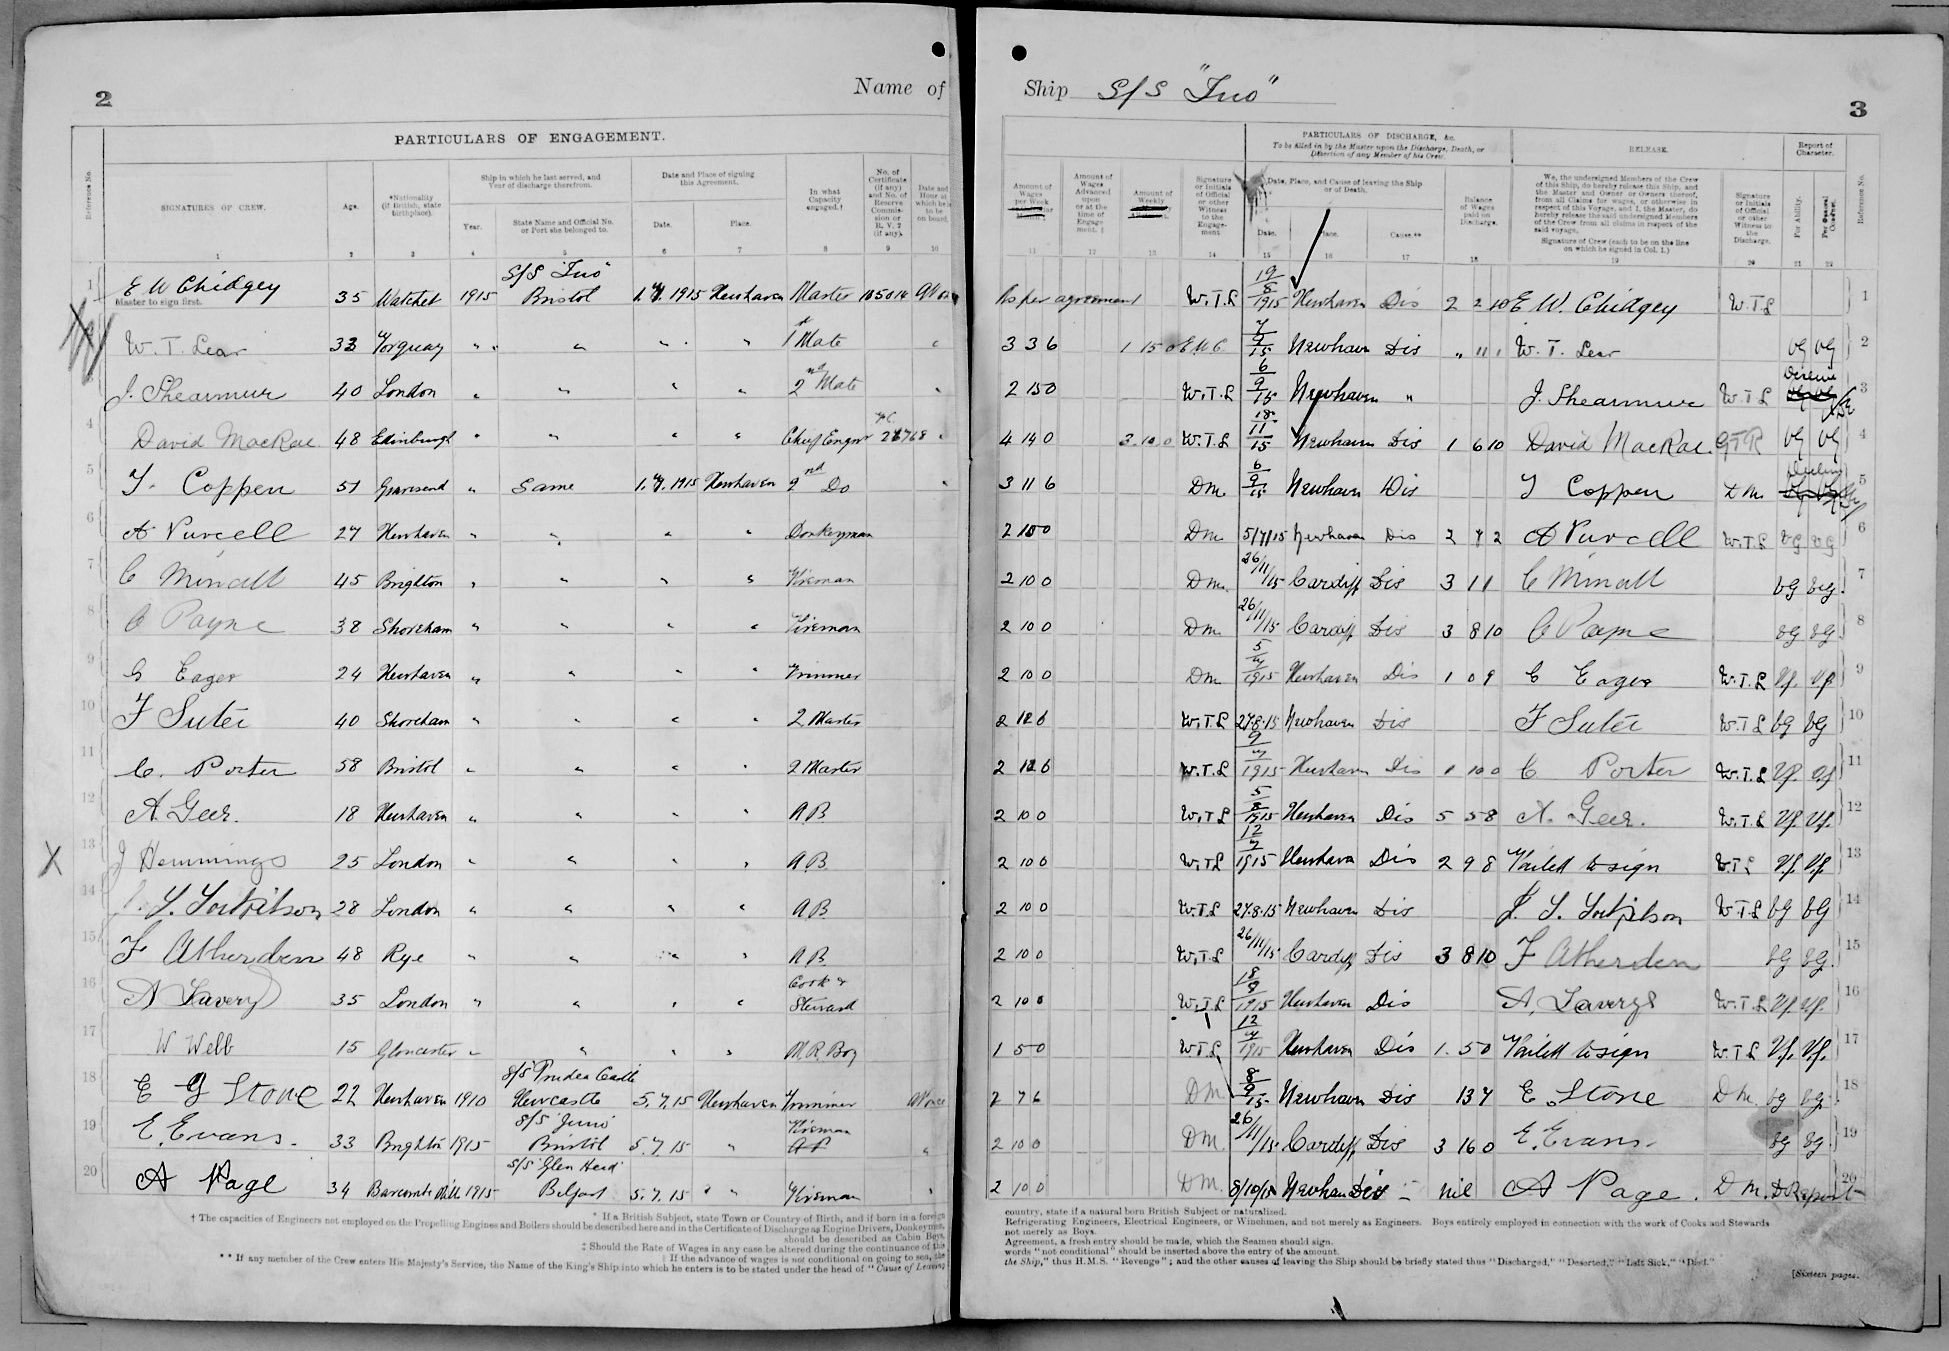 2
Name of
PARTICULARS OF ENGAGEMENT.
Reference No.
SIGNATURES OF CREW.
Age.
*Nationality (if British, state birthplace).
Ship in which he last served, and Year of discharge therefrom.
Year.
State Name and Official No. or Port she belonged to.
Date and Place of signing this Agreement.
Date.
Place.
In what Capacity engaged.†
No. of Certificate (if any) and No. of Reserve Commission or R. V. 2 (if any).
Date and Hour at which he is to be on board.
1 2 3 4 5 6 7 8 9 10
S/S "Ino"
1 E W Chidgey 35 Watchet 1915 Bristol 1.7.1915 Newhaven Master
Master to sign first.
W. T. Lear 33 Torquay " " " " 1st Mate "
J. Shearmur 40 London " " " " 2nd Mate "
4 David MacRae 48 Edinburgh " " " " Chief Engnr "
5 T. Coppen 51 Gravesend " Same 1.7.1915 Newhaven 2nd Do "
6 A Purcell 27 Newhaven " " " " Donkeyman
7 C Minall 45 Brighton " " " " Fireman
8 C Payne 38 Shoreham " " " " Fireman
9 G Eager 24 Newhaven " " " " Trimmer
10 F Suter 40 Shoreham " " " " 2 Master
11 C. Porter 58 Bristol " " " " 2 Master
12 A. Geer. 18 Newhaven " " " " A.B
X 13 J Hemmings 25 London " " " " A.B.
14 28 London " " " " A.B
15 F Atherden 48 Rye " " " " A.B
16 A Lavery 35 London " " " " Cook & Steward
17 W Webb 15 Gloucester " " " " M.R. Boy
18 E G Stone 22 Newhaven 1910 Newcastle 5.7.15 Newhaven Trimmer
S/S "Juno"
19 E. Evans. 33 Brighton 1915 Bristol 5.7.15 " Fireman "
S/S "Glen Head"
20 A Page 34 Barcombe Mills 1915 Belfast 5.7.15 " " Fireman "
* If a British Subject, state Town or Country of Birth, and if born in a foreign
† The capacities of Engineers not employed on the Propelling Engines and Boilers should be described here and in the Certificate of Discharge as Engine Drivers, Donkeymen,
should be described as Cabin Boys,
‡ Should the Rate of Wages in any case be altered during the continuance of this
‖ If the advance of wages is not conditional on going to sea, the
** If any member of the Crew enters His Majesty's Service, the Name of the King's Ship into which he enters is to be stated under the head of "Cause of Leaving
Ship S/S "Ino"
3
PARTICULARS OF DISCHARGE, &c.
To be filled in by the Master upon the Discharge, Death, or Desertion of any Member of his Crew.
RELEASE.
Report of Character.
Amount of Wages per Week
Amount of Wages Advanced upon or at the time of Engagement.‡
Amount of Weekly
Signature or Initials of Official or other Witness to the Engagement
Date, Place, and Cause of leaving the Ship or of Death.
Date.
Place.
Cause.**
Balance of Wages paid on Discharge.
We, the undersigned Members of the Crew of this Ship, do hereby release this Ship, and the Master and Owner or Owners thereof, from all Claims for wages, or otherwise in respect of this Voyage, and I, the Master, do hereby release the said undersigned Members of the Crew from all claims in respect of the said voyage.
Signature of Crew (each to be on the line on which he signed in Col. 1.)
Signature or Initials of Official or other Witness to the Discharge.
For Ability.
For General Conduct.
Reference No.
11 12 13 14 15 16 17 18 19 20 21 22
As per agreement W.T.L 19/8 1915 Newhaven Dis 2 2 10 E W. Chidgey W.T.L 1
3 3 6 1 15 0 E.W.C. 7/9 15 Newhaven Dis " 11 1 W. T. Lear VG VG 2
2 15 0 W.T.L 6/9 15 Newhaven " J. Shearmur W.T.L Decline 3
4 14 0 3.10.0 W.T.L 18/11 15 Newhaven Dis 1 6 10 David MacRae. VG VG 4
3 11 6 DM. 6/9 15 Newhaven Dis T Coppen DM. 5
2 15 0 DM 5/7/15 Newhaven Dis 2 7 2 A Purcell W.T.L VG VG 6
2 10 0 DM. 26/11/15 Cardiff Dis 3 1 1 C Minall VG VG. 7
2 10 0 DM. 26/11/15 Cardiff Dis 3 8 10 C Payne VG VG. 8
2 10 0 DM 5/7 1915 Newhaven Dis 1 0 9 G Eager W.T.L VG. VG 9
2 12 6 W.T.L 27.8.15 Newhaven Dis F Suter W.T.L VG VG 10
2 12 6 W.T.L 9/7 1915 Newhaven Dis 1 10 0 C Porter W.T.L VG. VG 11
2 10 0 W.T.L 5/8 1915 Newhaven Dis 5 5 8 A. Geer. W.T.L VG. VG. 12
2 10 0 W.T.L 12/7 1915 Newhaven Dis 2 9 8 Failed to sign W.T.L VG. VG. 13
2 10 0 W.T.L 27.8.15 Newhaven Dis W.T.L VG VG 14
2 10 0 W.T.L 26/11/15 Cardiff Dis 3 8 10 F Atherden VG VG. 15
2 10 0 W.T.L 18/8 1915 Newhaven Dis A. Lavery W.T.L VG. VG. 16
1 5 0 W.T.L 12/7 1915 Newhaven Dis 1. 5 0 Failed to sign W.T.L VG. VG. 17
2 7 6 DM 8/9 15 Newhaven Dis 13 7 E. Stone DM. VG VG. 18
2 10 0 DM. 26/11/15 Cardiff Dis 3 16 0 E. Evans. VG VG. 19
2 10 0 DM. 8/10/15 Newhaven Dis nil A Page. DM. D Report 20
country, state if a natural born British Subject or naturalized.
Refrigerating Engineers, Electrical Engineers, or Winchmen, and not merely as Engineers. Boys entirely employed in connection with the work of Cooks and Stewards
not merely as Boys.
Agreement, a fresh entry should be made, which the Seamen should sign.
words "not conditional" should be inserted above the entry of the amount.
the Ship," thus H.M.S. "Revenge"; and the other causes of leaving the Ship should be briefly stated thus "Discharged," "Deserted," "Left Sick," "Died."
[Sixteen pages.